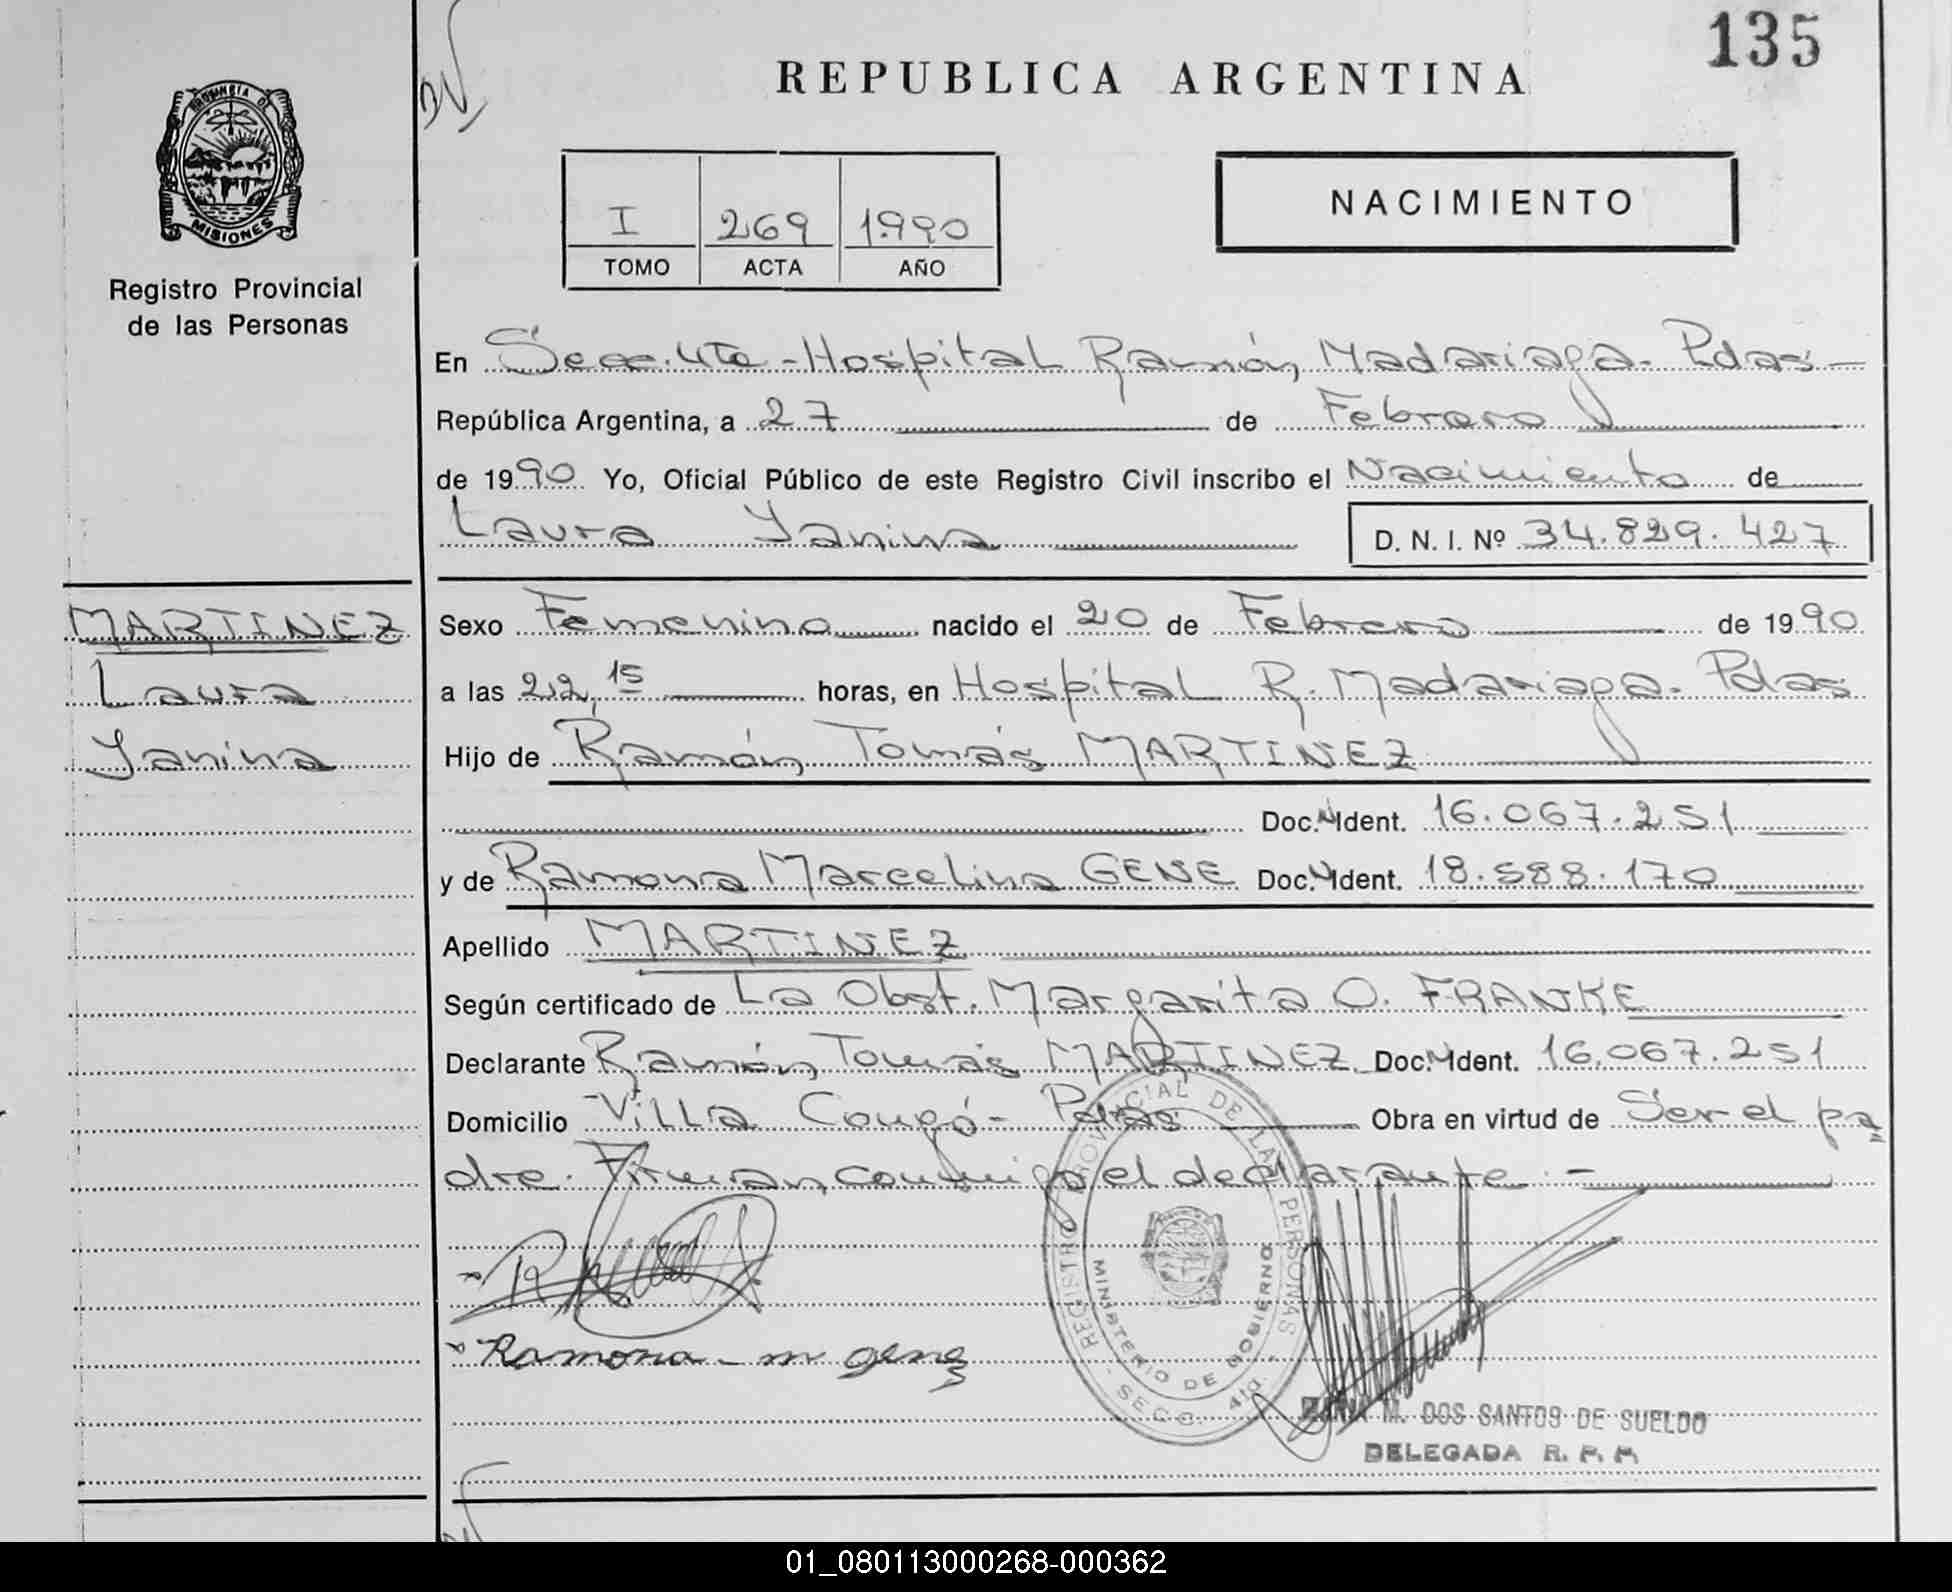 135
REPUBLICA ARGENTINA
PROVINCIA DE
MISIONES
Registro Provincial
de las Personas
I 269 1990
TOMO ACTA AÑO
NACIMIENTO
En Secc. 4ta - Hospital Ramón Madariaga - Pdas -
República Argentina, a 27 de Febrero
de 1990 Yo, Oficial Público de este Registro Civil inscribo el Nacimiento de
Laura Yanina D. N. I. Nº 34.829.427
MARTINEZ
Laura
Yanina
Sexo Femenino nacido el 20 de Febrero de 1990
a las 22,15 horas, en Hospital R. Madariaga - Pdas
Hijo de Ramón Tomás MARTINEZ
Doc. N Ident. 16.067.251
y de Ramona Marcelina GENE Doc. N Ident. 18.588.170
Apellido MARTINEZ
Según certificado de La Obst. Margarita O. FRANKE
Declarante Ramón Tomás MARTINEZ Doc. N Ident. 16.067.251
Domicilio Villa - Pdas Obra en virtud de Ser el pa
dre. Firman conmigo el declarante . -
REGISTRO PROVINCIAL DE LAS PERSONAS
MINISTERIO DE GOBIERNO
- SECC. 4ta. -
Ramona - m gene
M. DOS SANTOS DE SUELDO
DELEGADA R. P. P.
01_080113000268-000362